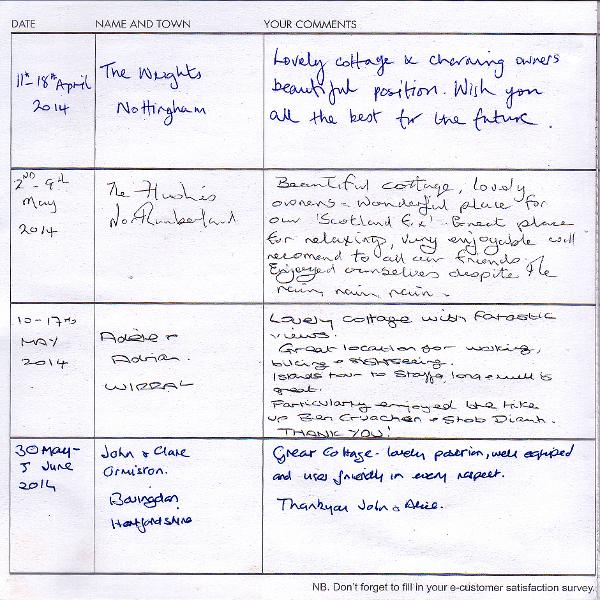 DATE NAME AND TOWN YOUR COMMENTS
11th - 18th April
2014
The Wrights
Nottingham
Lovely cottage & charming owners
beautiful position. Wish you
all the best for the future.
2ND - 9th
May
2014
The Hushes
Northumberland
Beautiful cottage, lovely
owners - wonderful place for
our 'Scotland Ex'. Great place
for relaxing, very enjoyable will
recomend to all our friends.
Enjoyed ourselves despite the
rain, rain, rain.
10-17th
MAY
2014
Adele +
Adrian.
WIRRAL
Lovely cottage with fantastic
views.
Great location for walking,
biking + sightseeing.
Islands tour to Staffa, Iona + mull is
great.
Particularly enjoyed the hike
up Ben Cruachan + Stob Diamh.
THANK YOU!
30 May -
5 June
2014
John & Clare
Ormiston.
Bovingdon
Hertfordshire
Great Cottage - lovely position, well equipped
and user friendly in every respect.
Thankyou John & Alice.
NB. Don't forget to fill in your e-customer satisfaction survey.